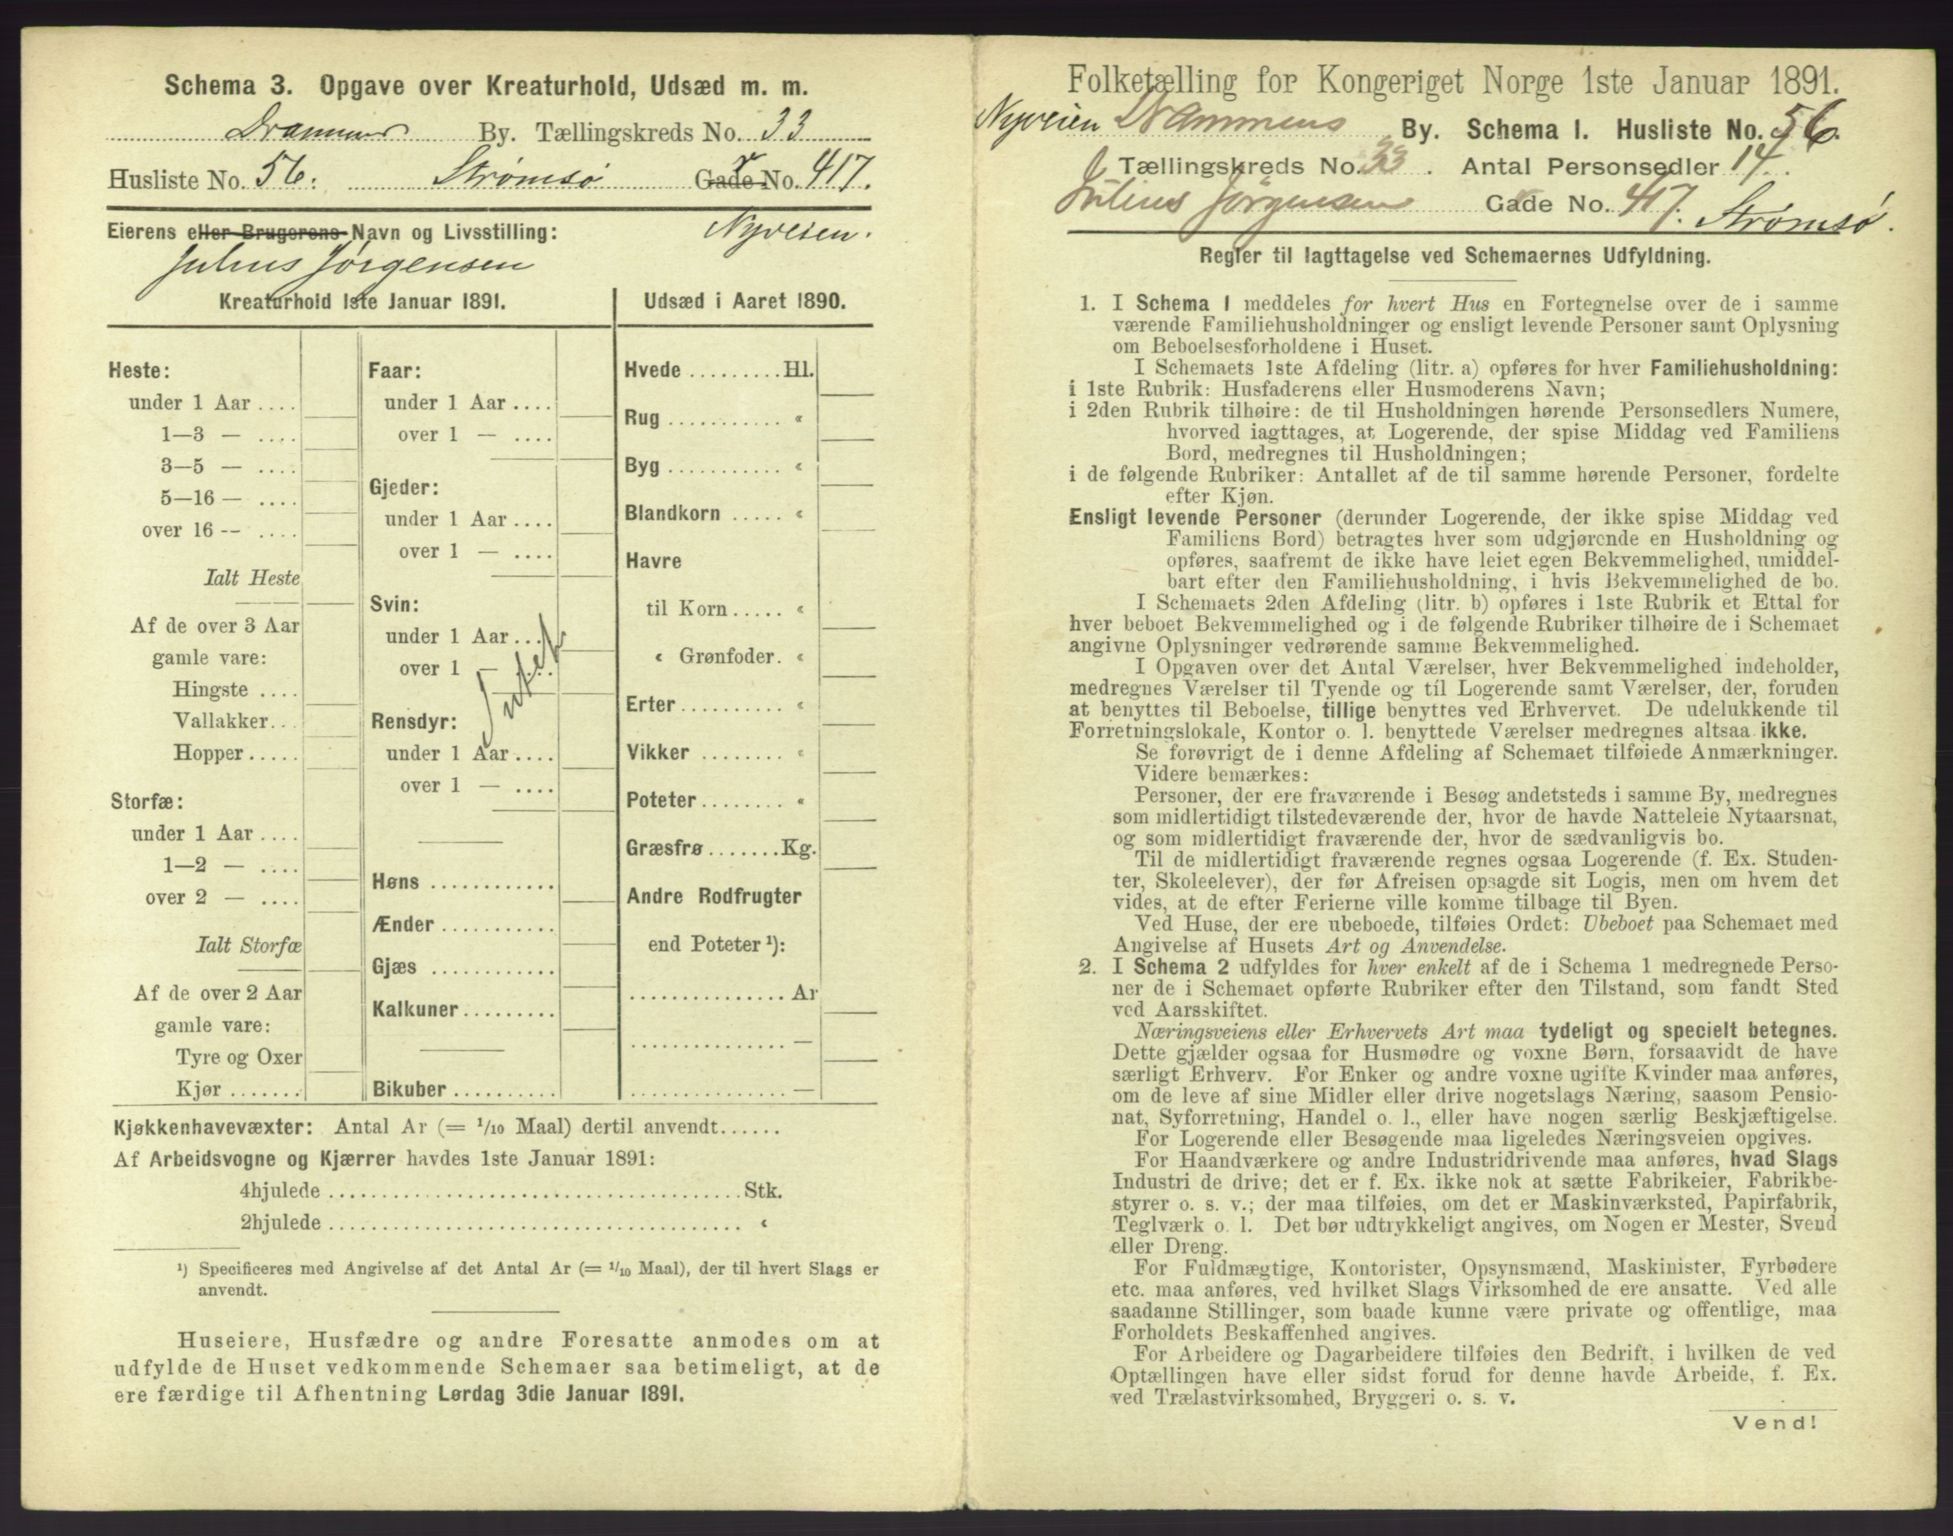 Schema 3. Opgave over Kreaturhold, Udsæd m. m.
Drammens By. Tællingskreds No. 33
Husliste No. 56. Strømsø Gade No. 417.
Eierens eller Brugerens Navn og Livsstilling: Nyveien.
Julius Jørgensen
Kreaturhold 1ste Januar 1891.
Heste:
under 1 Aar ....
1—3 — ....
3—5 — ....
5—16 — ....
over 16 -- ....
Ialt Heste
Af de over 3 Aar
gamle vare:
Hingste ....
Vallakker...
Hopper.....
Storfæ:
under 1 Aar ....
1—2 — ....
over 2 — ....
Ialt Storfæ
Af de over 2 Aar
gamle vare:
Tyre og Oxer
Kjør .......
Faar:
under 1 Aar ....
over 1 — ....
Gjeder:
under 1 Aar ....
over 1 — ....
Svin:
under 1 Aar ....
over 1 — ....
Intet
Rensdyr:
under 1 Aar ....
over 1 — ....
Høns ............
Ænder ...........
Gjæs ............
Kalkuner.........
Bikuber ..........
Udsæd i Aaret 1890.
Hvede .........Hl.
Rug ........... «
Byg ........... «
Blandkorn ..... «
Havre
til Korn..... «
« Grønfoder. «
Erter.......... «
Vikker ........ «
Poteter........ «
Græsfrø.......Kg.
Andre Rodfrugter
end Poteter ¹):
............... Ar
............... —
............... —
Kjøkkenhavevæxter: Antal Ar (= 1/10 Maal) dertil anvendt......
Af Arbeidsvogne og Kjærrer havdes 1ste Januar 1891:
4hjulede ........................................Stk.
2hjulede ........................................ «
¹) Specificeres med Angivelse af det Antal Ar (= 1/10 Maal), der til hvert Slags er
anvendt.
Huseiere, Husfædre og andre Foresatte anmodes om at
udfylde de Huset vedkommende Schemaer saa betimeligt, at de
ere færdige til Afhentning Lørdag 3die Januar 1891.
Folketælling for Kongeriget Norge 1ste Januar 1891.
Nyveien Drammens By. Schema I. Husliste No. 56.
Tællingskreds No. 33. Antal Personsedler 14.
Julius Jørgensen Gade No. 417. Strømsø.
Regler til Iagttagelse ved Schemaernes Udfyldning.
1. I Schema I meddeles for hvert Hus en Fortegnelse over de i samme
værende Familiehusholdninger og ensligt levende Personer samt Oplysning
om Beboelsesforholdene i Huset.
I Schemaets 1ste Afdeling (litr. a) opføres for hver Familiehusholdning:
i 1ste Rubrik: Husfaderens eller Husmoderens Navn;
i 2den Rubrik tilhøire: de til Husholdningen hørende Personsedlers Numere,
hvorved iagttages, at Logerende, der spise Middag ved Familiens
Bord, medregnes til Husholdningen;
i de følgende Rubriker: Antallet af de til samme hørende Personer, fordelte
efter Kjøn.
Ensligt levende Personer (derunder Logerende, der ikke spise Middag ved
Familiens Bord) betragtes hver som udgjørende en Husholdning og
opføres, saafremt de ikke have leiet egen Bekvemmelighed, umiddel-
bart efter den Familiehusholdning, i hvis Bekvemmelighed de bo.
I Schemaets 2den Afdeling (litr. b) opføres i 1ste Rubrik et Ettal for
hver beboet Bekvemmelighed og i de følgende Rubriker tilhøire de i Schemaet
angivne Oplysninger vedrørende samme Bekvemmelighed.
I Opgaven over det Antal Værelser, hver Bekvemmelighed indeholder,
medregnes Værelser til Tyende og til Logerende samt Værelser, der, foruden
at benyttes til Beboelse, tillige benyttes ved Erhvervet. De udelukkende til
Forretningslokale, Kontor o. l. benyttede Værelser medregnes altsaa ikke.
Se forøvrigt de i denne Afdeling af Schemaet tilføiede Anmærkninger.
Videre bemærkes:
Personer, der ere fraværende i Besøg andetsteds i samme By, medregnes
som midlertidigt tilstedeværende der, hvor de havde Natteleie Nytaarsnat,
og som midlertidigt fraværende der, hvor de sædvanligvis bo.
Til de midlertidigt fraværende regnes ogsaa Logerende (f. Ex. Studen-
ter, Skoleelever), der før Afreisen opsagde sit Logis, men om hvem det
vides, at de efter Ferierne ville komme tilbage til Byen.
Ved Huse, der ere ubeboede, tilføies Ordet: Ubeboet paa Schemaet med
Angivelse af Husets Art og Anvendelse.
2. I Schema 2 udfyldes for hver enkelt af de i Schema 1 medregnede Perso-
ner de i Schemaet opførte Rubriker efter den Tilstand, som fandt Sted
ved Aarsskiftet.
Næringsveiens eller Erhvervets Art maa tydeligt og specielt betegnes.
Dette gjælder ogsaa for Husmødre og voxne Børn, forsaavidt de have
særligt Erhverv. For Enker og andre voxne ugifte Kvinder maa anføres,
om de leve af sine Midler eller drive nogetslags Næring, saasom Pensio-
nat, Syforretning, Handel o. l., eller have nogen særlig Beskjæftigelse.
For Logerende eller Besøgende maa ligeledes Næringsveien opgives.
For Haandværkere og andre Industridrivende maa anføres, hvad Slags
Industri de drive; det er f. Ex. ikke nok at sætte Fabrikeier, Fabrikbe-
styrer o. s. v.; der maa tilføies, om det er Maskinværksted, Papirfabrik,
Teglværk o. l. Det bør udtrykkeligt angives, om Nogen er Mester, Svend
eller Dreng.
For Fuldmægtige, Kontorister, Opsynsmænd, Maskinister, Fyrbødere
etc. maa anføres, ved hvilket Slags Virksomhed de ere ansatte. Ved alle
saadanne Stillinger, som baade kunne være private og offentlige, maa
Forholdets Beskaffenhed angives.
For Arbeidere og Dagarbeidere tilføies den Bedrift, i hvilken de ved
Optællingen have eller sidst forud for denne havde Arbeide, f. Ex.
ved Trælastvirksomhed, Bryggeri o. s. v.
Vend!